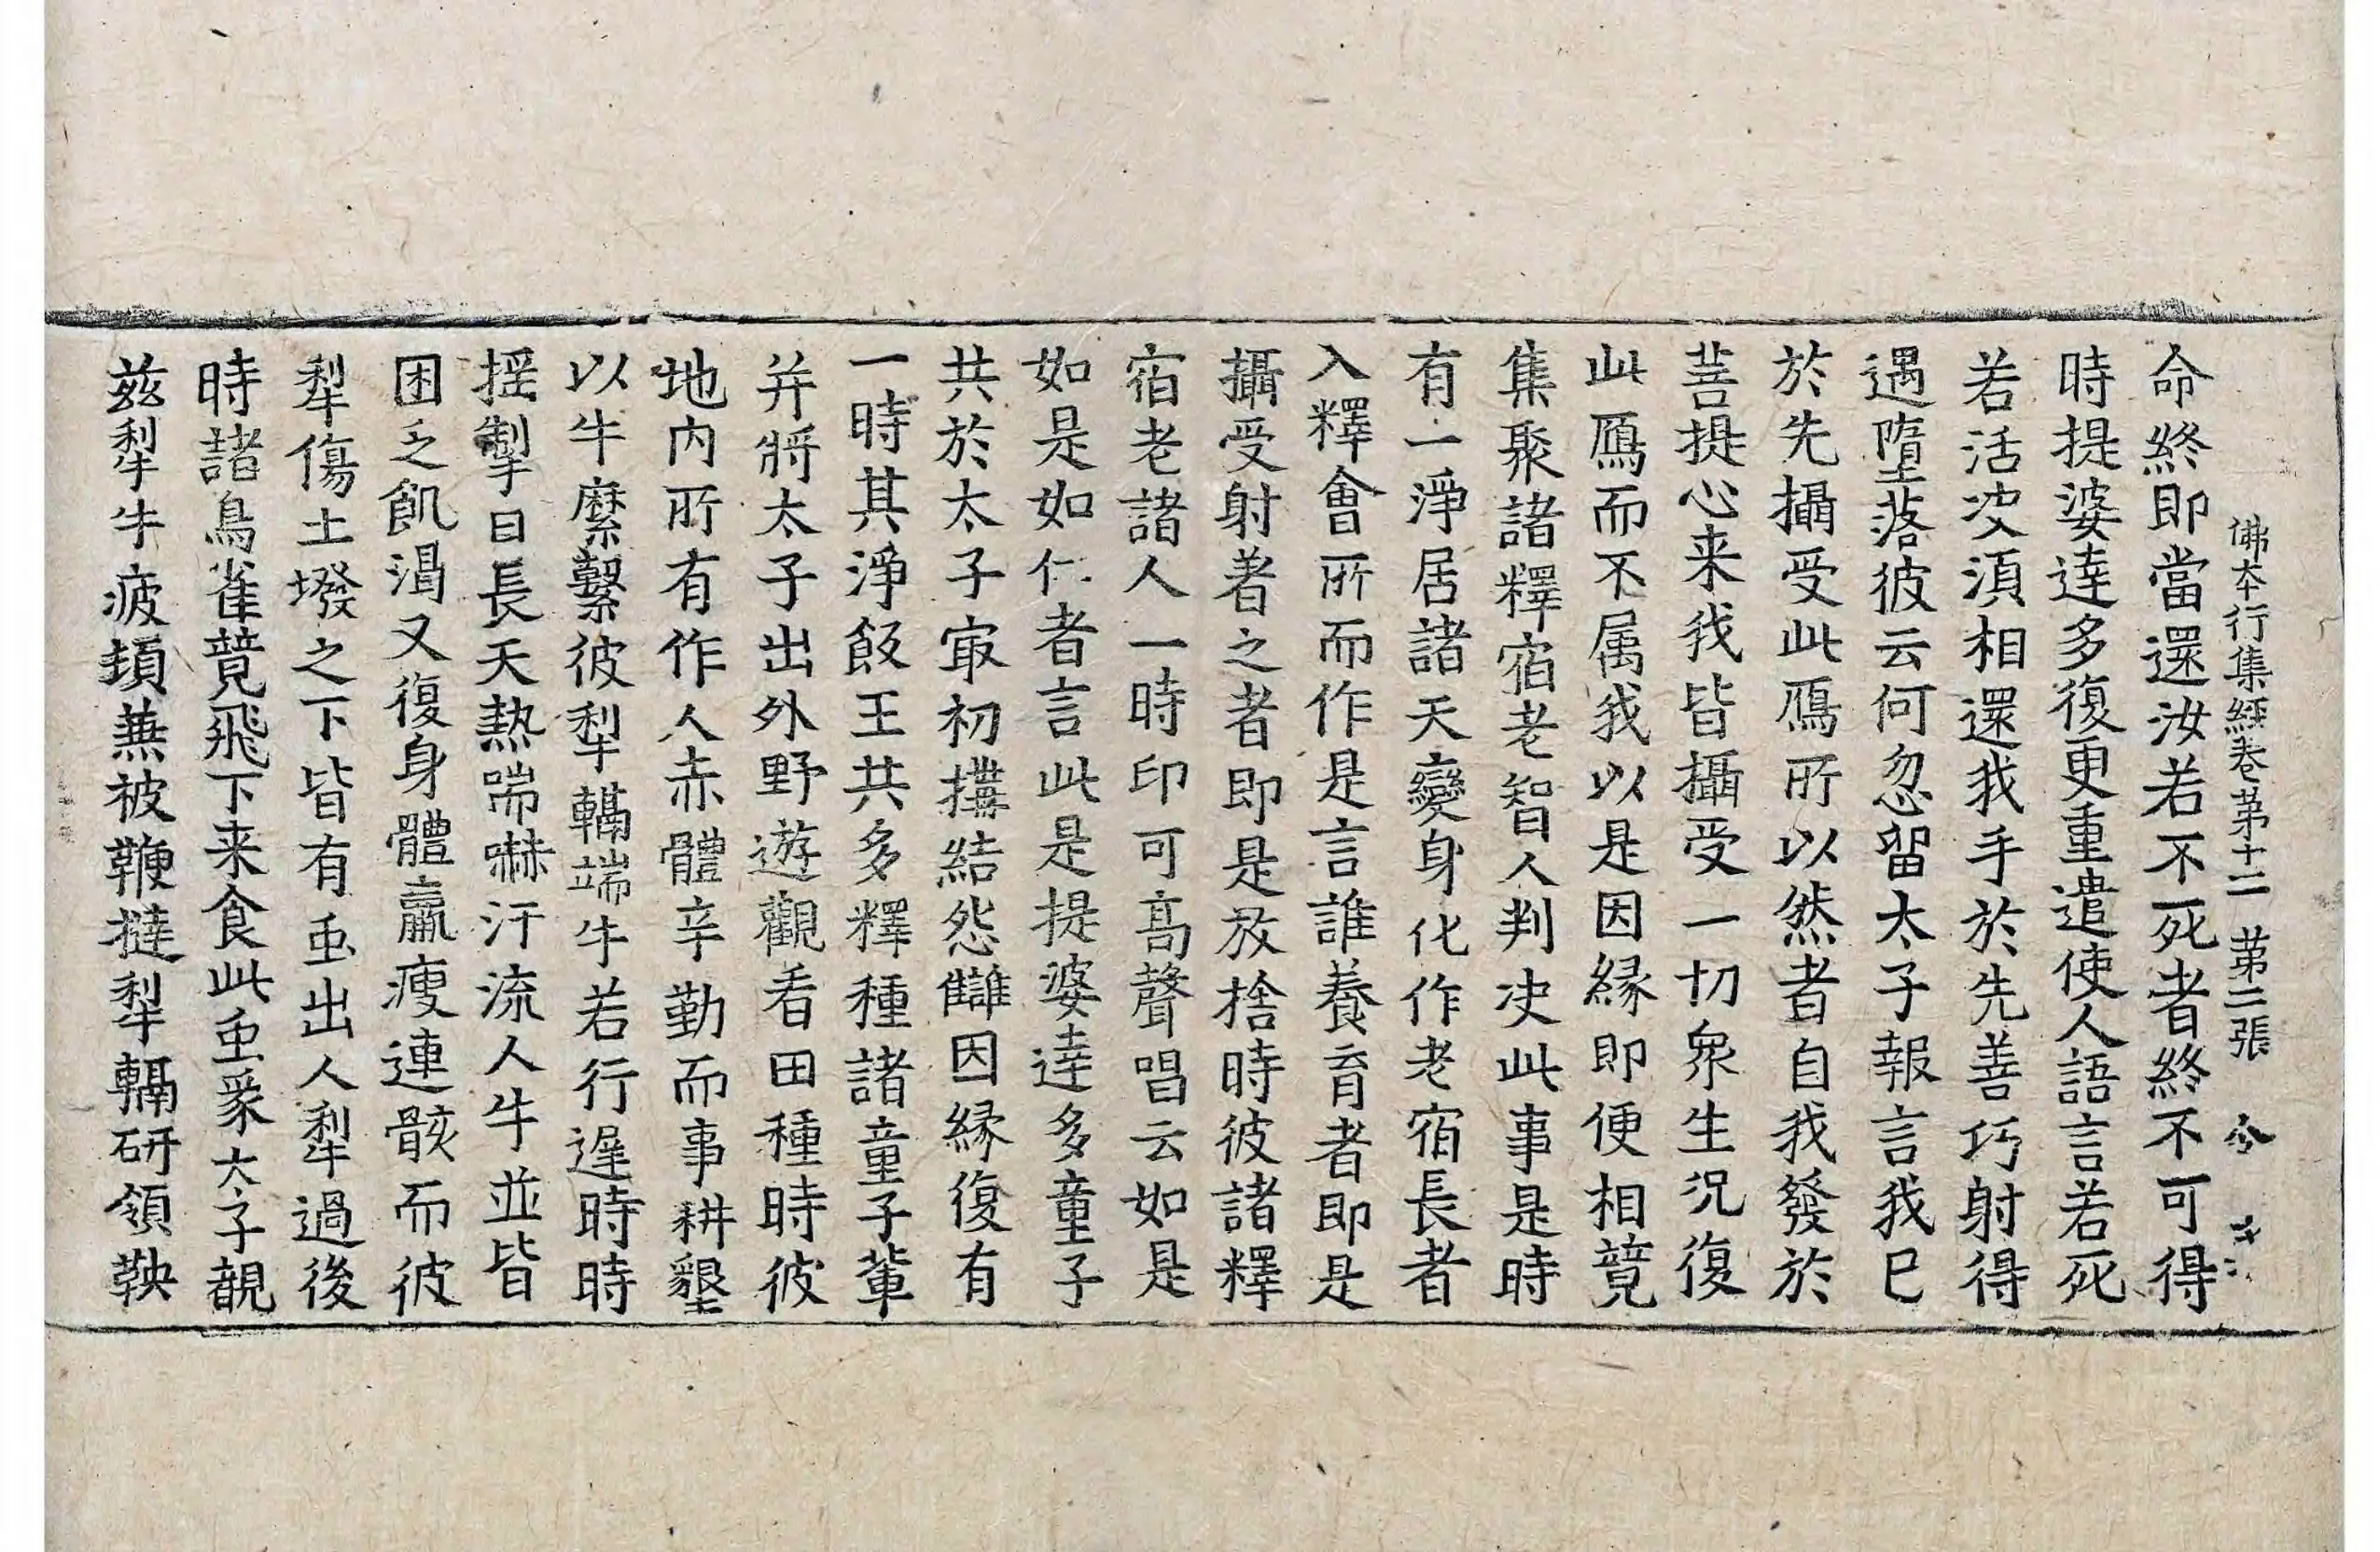 佛本行集經卷第十二 第二張 令
命終即當還汝若不死者終不可得
時提婆達多復更重遣使人語言若死
若活決須相還我手於先善巧射得
遇墮落彼云何忽留太子報言我已
於先攝受此鴈所以然者自我發於
菩提心来我皆攝受一切衆生況復
此鴈而不属我以是因縁即便相競
集聚諸釋宿老智人判决此事是時
有一淨居諸天變身化作老宿長者
入釋會所而作是言誰養育者即是
攝受射著之者即是放捨時彼諸釋
宿老諸人一時印可高聲唱云如是
如是如仁者言此是提婆達多童子
共於太子㝡初搆結怨讎因縁復有
一時其淨飯王共多釋種諸童子輩
并將太子出外野遊觀看田種時彼
地内所有作人赤體辛勤而事耕墾
以牛縻繫彼犁槅端牛若行遲時時
揺掣日長天熱喘嚇汗流人牛並皆
困乏飢渴又復身體羸瘦連骸而彼
犁傷土墢之下皆有虫出人犁過後
時諸鳥雀競飛下来食此虫豖太子覩
兹犁牛疲頓兼被鞭撻犁槅研領鞅